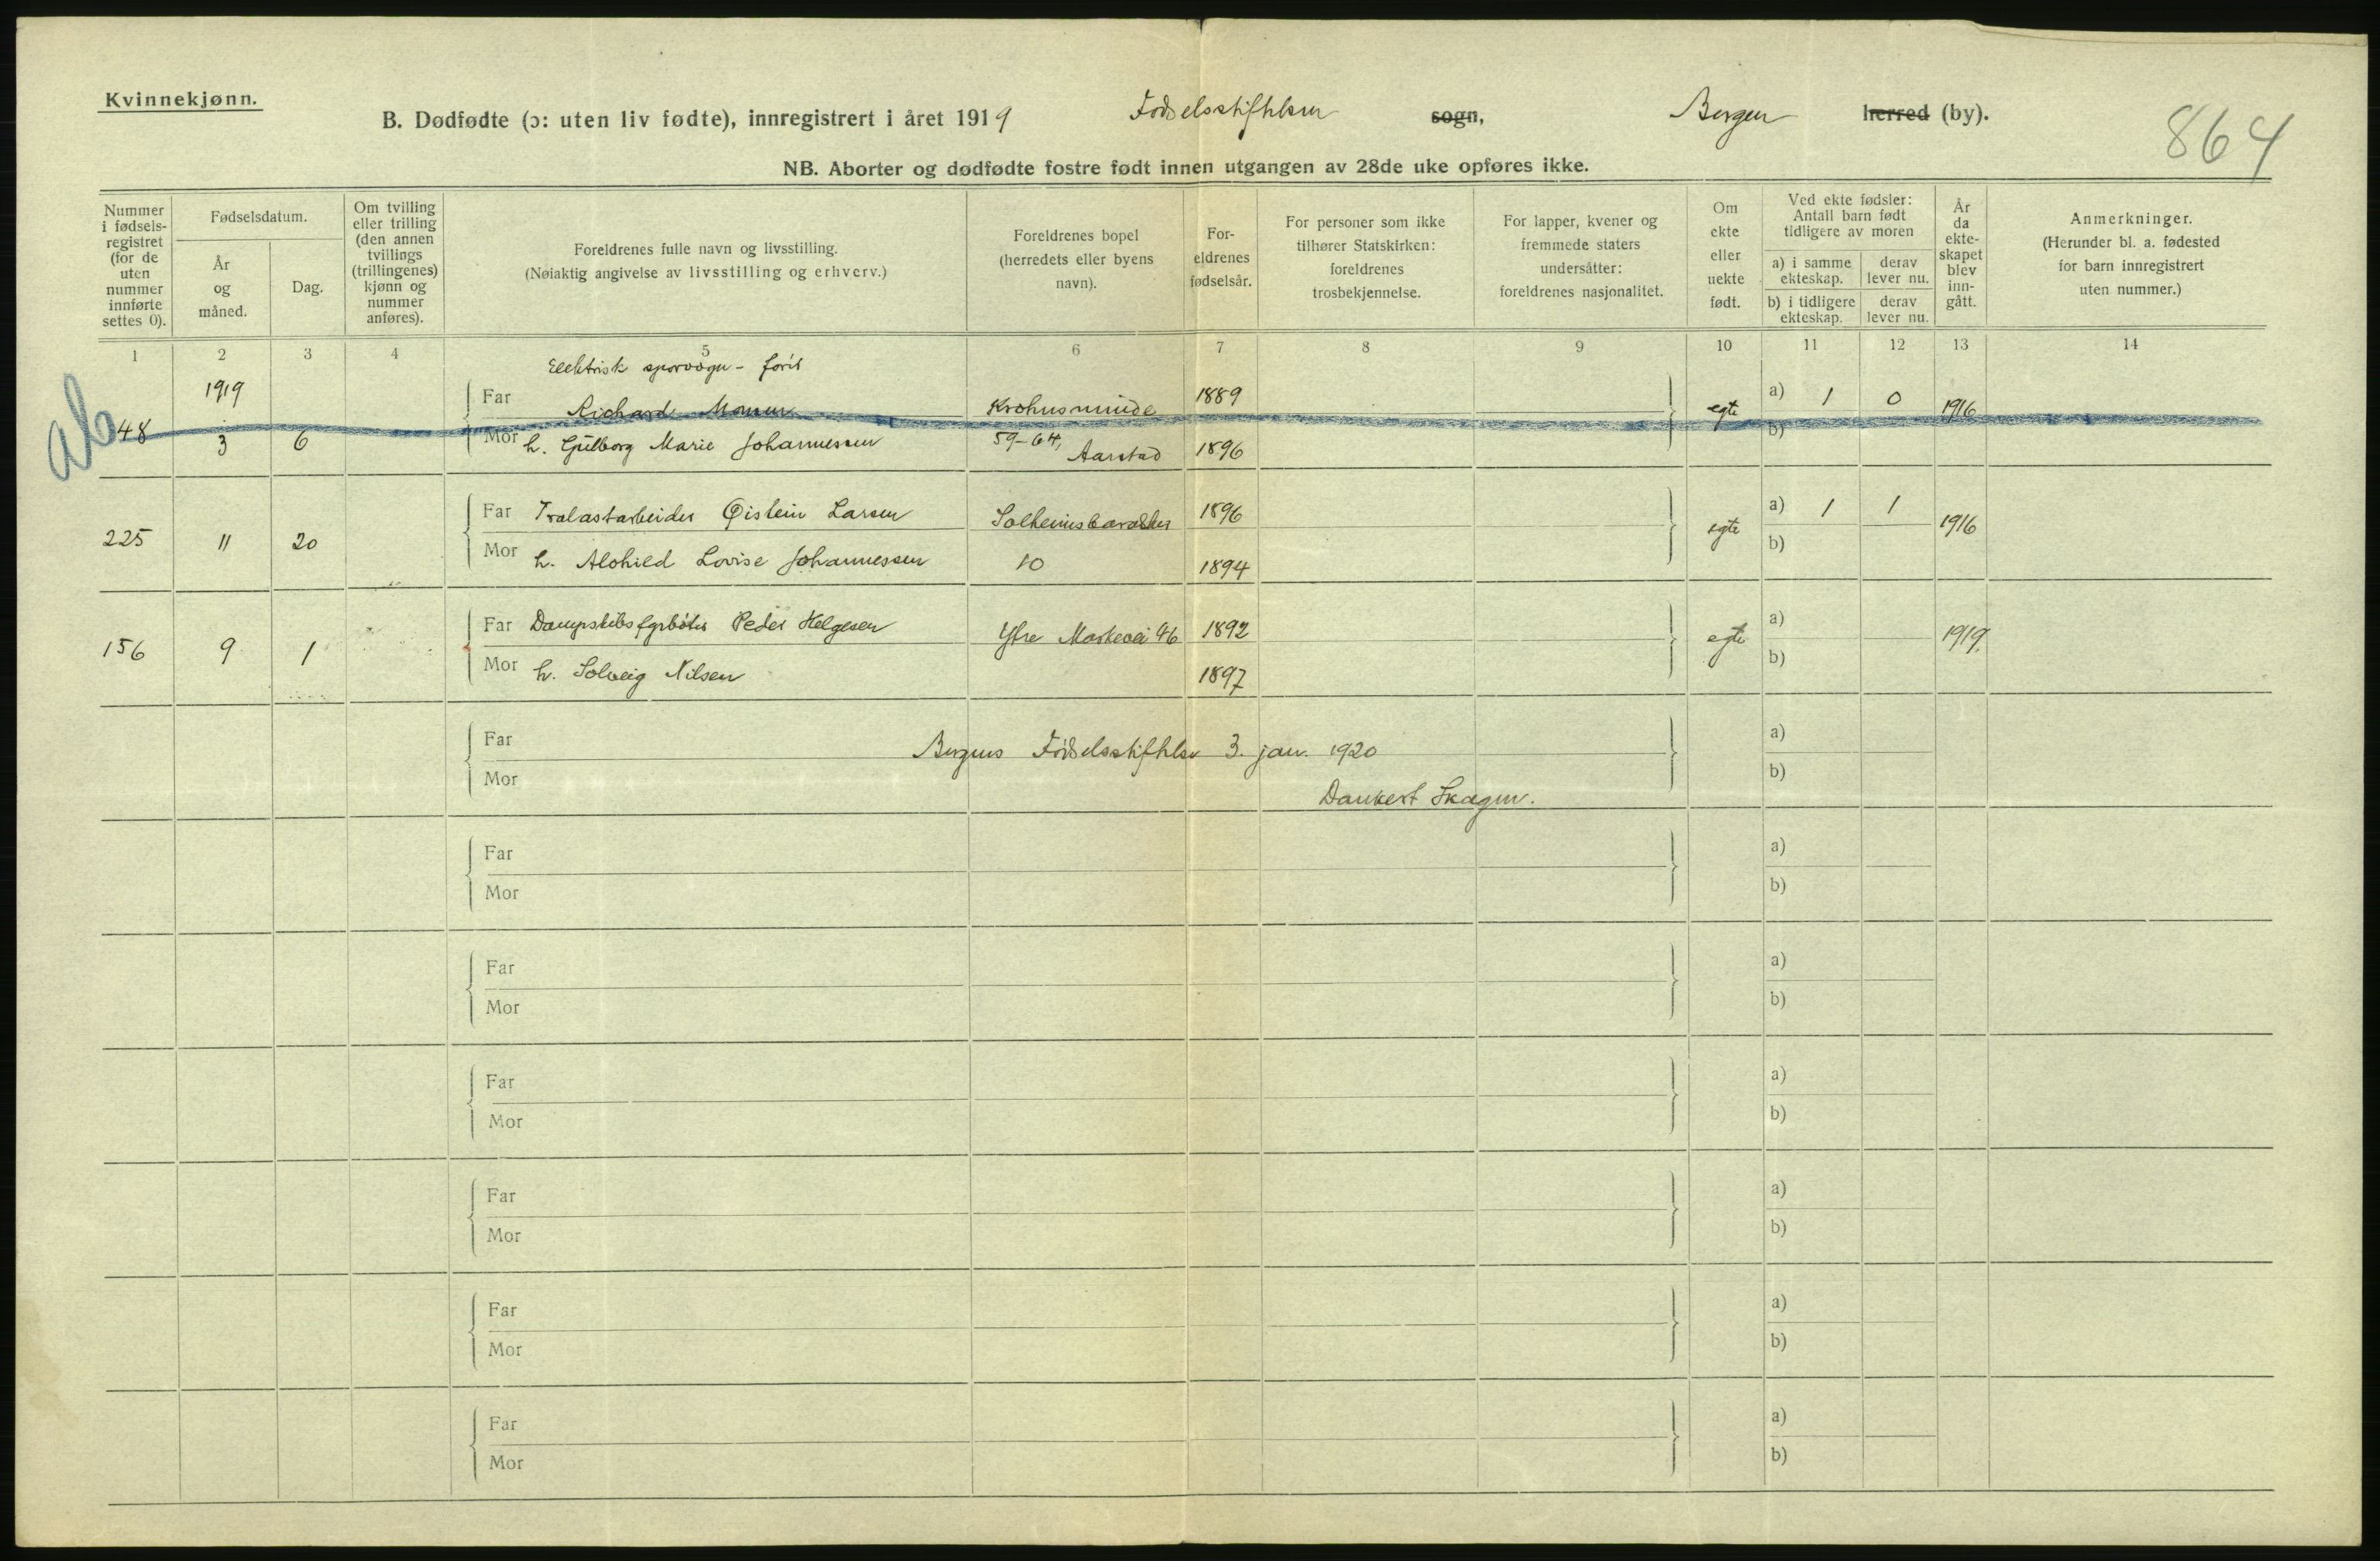 Kvinnekjønn.
B. Dødfødte (ɔ: uten liv fødte), innregistrert i året 1919 Fødselsstiftelsen sogn, Bergen herred (by).
864
NB. Aborter og dødfødte fostre født innen utgangen av 28de uke opføres ikke.
Nummer i fødselsregistret (for de uten nummer innførte settes 0).
Fødselsdatum.
År og måned.
Dag.
Om tvilling eller trilling (den annen tvillings (trillingenes) kjønn og nummer anføres).
Foreldrenes fulle navn og livsstilling.
(Nøiaktig angivelse av livsstilling og erhverv.)
Foreldrenes bopel (herredets eller byens navn).
Foreldrenes fødselsår.
For personer som ikke tilhører Statskirken: foreldrenes trosbekjennelse.
For lapper, kvener og fremmede staters undersåtter: foreldrenes nasjonalitet.
Om ekte eller uekte født.
Ved ekte fødsler: Antall barn født tidligere av moren
a) i samme ekteskap.
derav lever nu.
b) i tidligere ekteskap.
derav lever nu.
År da ekteskapet blev inngått.
Anmerkninger.
(Herunder bl. a. fødested for barn innregistrert uten nummer.)
1 2 3 4 5 6 7 8 9 10 11 12 13 14
Elektrisk sporvogn-fører
1919 Far Richard Krohnsminde 1889 a) 1 0
ab 48 3 6 Mor h. Gulborg Marie Johannessen 59-64, Aarstad 1896 egte b) 1916
Far Tralastarbeider Øistein Larsen Solheimsbarakker 1896 a) 1 1
225 11 20 Mor h. Alvhild Lovise Johannessen 10 1894 egte b) 1916
Far Dampskibsfyrbøter Peder Helgesen Ytre Markevei 46 1892 a)
156 9 1 Mor h. Solveig Nilsen 1897 egte b) 1919.
Far Bergens Fødselsstiftelse 3. jan. 1920 a)
Mor Dankert Skagen. b)
Far a)
Mor b)
Far a)
Mor b)
Far a)
Mor b)
Far a)
Mor b)
Far a)
Mor b)
Far a)
Mor b)